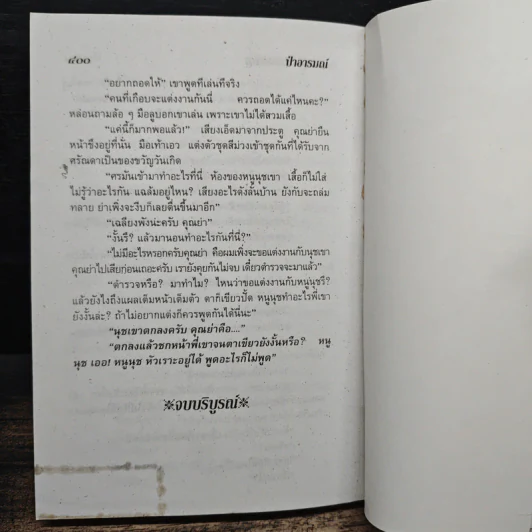 ๔๐๐ ป้าอารมณ์
“อยากถอดให้” เขาพูดทีเล่นทีจริง
“คนที่เกือบจะแต่งงานกันนี่ ควรถอดได้แค่ไหนคะ?”
หล่อนถามล้อ ๆ มือลูบอกเขาเล่น เพราะเขาไม่ได้สวมเสื้อ
“แค่นี้ก็มากพอแล้ว!” เสียงเอ็ดมาจากประตู คุณย่ายืน
หน้าขึงอยู่ที่นั่น มือเท้าเอว แต่งตัวชุดสีม่วงเข้าชุดกันที่ได้รับจาก
ศรัณดาเป็นของขวัญวันเกิด
“ศรมันเข้ามาทำอะไรที่นี่ ห้องของหนูนุชเขา เสื้อก็ไม่ใส่
ไม่รู้ว่าอะไรกัน แฉล้มอยู่ไหน? เสียงอะไรดังลั่นบ้าน ยังกับจะถล่ม
ทลาย ย่าเพิ่งจะงีบก็เลยตื่นขึ้นมาอีก”
“เฉลียงพังน่ะครับ คุณย่า”
“งั้นรึ? แล้วมานอนทำอะไรกันที่นี่?”
“ไม่มีอะไรหรอกครับคุณย่า คือผมเพิ่งจะขอแต่งงานกับนุชเขา
คุณย่าไปเสียก่อนเถอะครับ เรายังคุยกันไม่จบ เดี๋ยวตำรวจจะมาแล้ว”
“ตำรวจหรือ? มาทำไม? ไหนว่าขอแต่งงานกับหนูนุชรึ?
แล้วยังไงถึงแผลเต็มหน้าเต็มตัว ตาก็เขียวปั้ด หนูนุชทำอะไรพี่เขา
ยังงั้นล่ะ? ถ้าไม่อยากแต่งก็ควรพูดกันได้นี่นะ”
“นุชเขาตกลงครับ คุณย่าคือ....”
“ตกลงแล้วชกหน้าพี่เขาจนตาเขียวยังงั้นหรือ? หนู
นุช เออ! หนูนุช หัวเราะอยู่ได้ พูดอะไรก็ไม่พูด”
※จบบริบูรณ์※